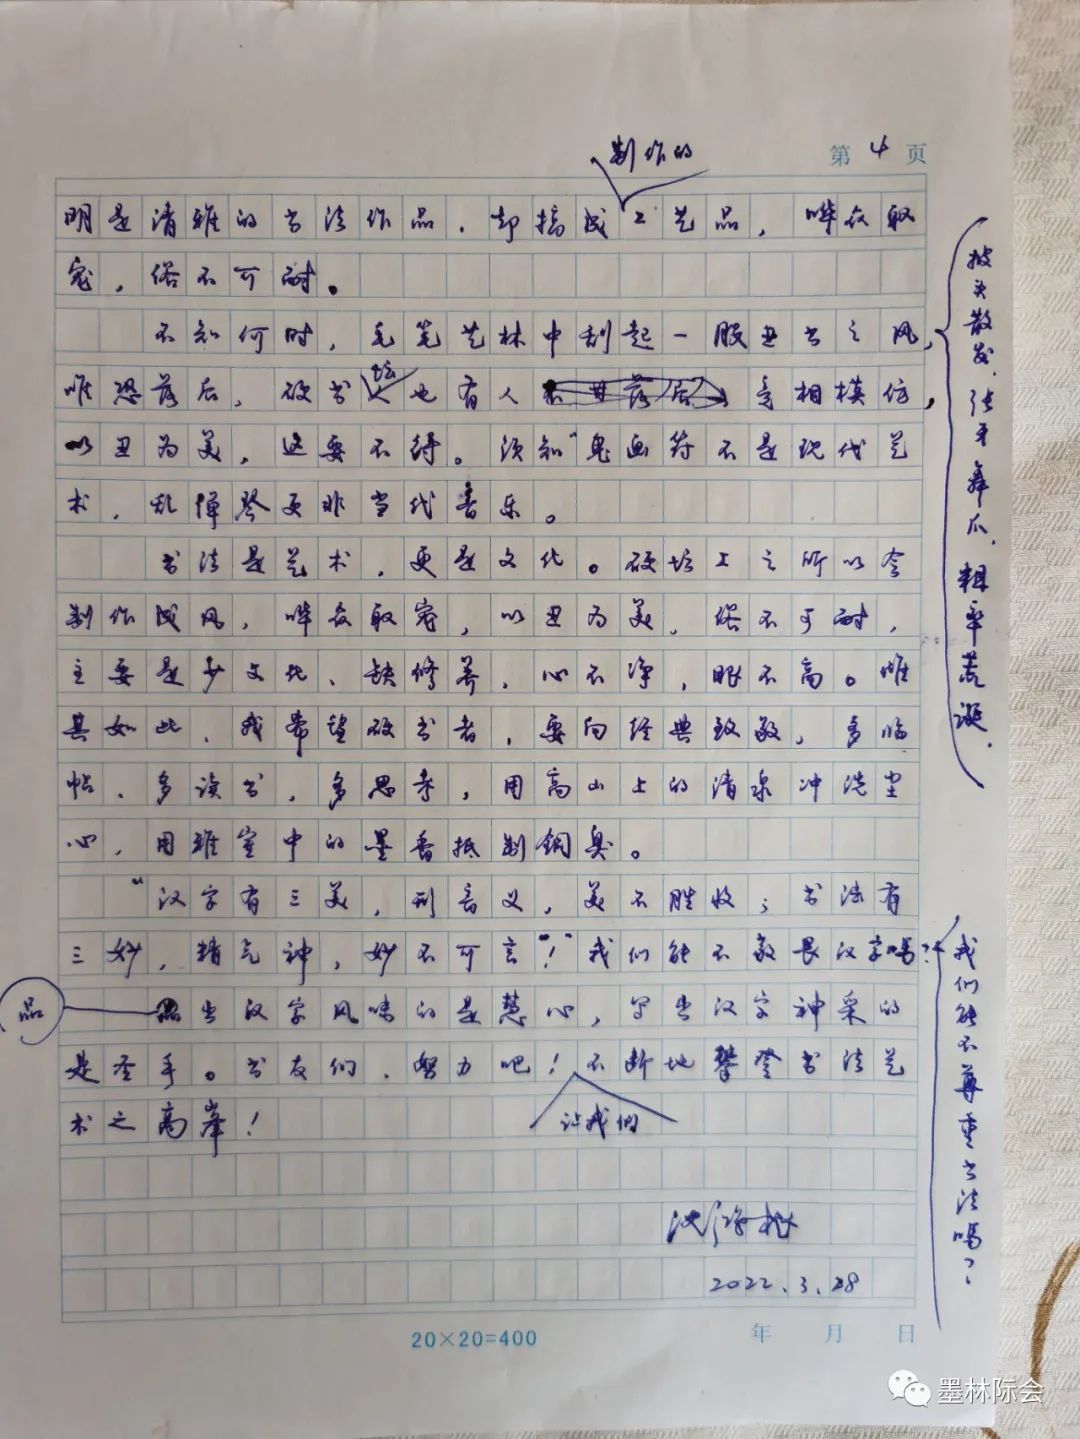 制作的
第4页
明是清雅的书法作品，却搞成工艺品，哗众取
宠，俗不可耐。
不知何时，毛笔艺林中刮起一股丑书之风，
披头散发、张牙舞爪、粗率荒诞，
坛
唯恐落后，硬书人也有人甘落后竞相模仿，
以丑为美，这要不得。须知"鬼画符不是现代艺
术，乱弹琴更非当代音乐。
书法是艺术，更是文化。硬坛上之所以会
制作成风，哗众取宠，以丑为美，俗不可耐，
主要是少文化、缺修养，心不净，眼不高。惟
其如此，我希望硬书者，要向经典致敬，多临
帖、多读书，多思考，用高山上的清泉冲洗尘
心，用雅室中的墨香抵制铜臭。
"汉字有三美，形音义，美不胜收；书法有
三妙，精气神，妙不可言"！"我们能不敬畏汉字吗？
我们能不尊重书法吗？
品
出汉字风味的是慧心，写出汉字神采的
是圣手。书友们，努力吧！不断地攀登书法艺
让我们
术之高峰！
沈鸿根
2022.3.28
20×20=400
年 月 日
墨林际会